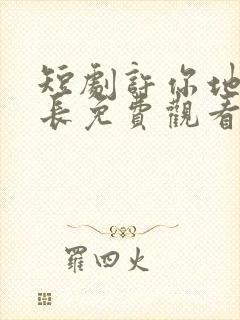 短劇許你地
長免費觀看
羅四火